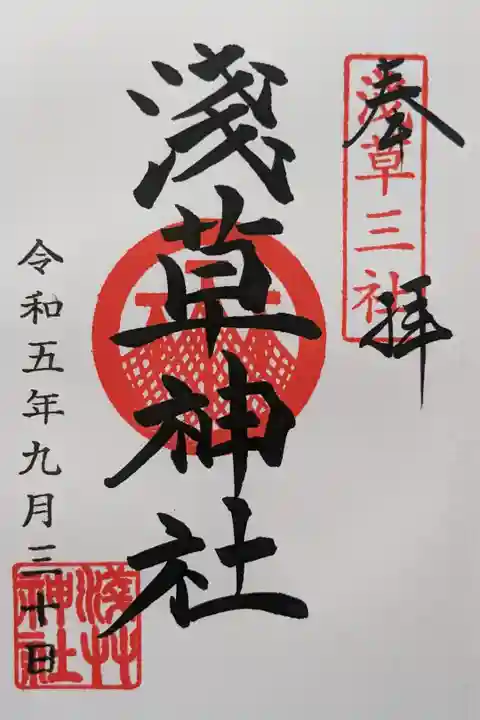 奉拝
淺草三社
淺草神社
令和五年九月三十日
淺草神社